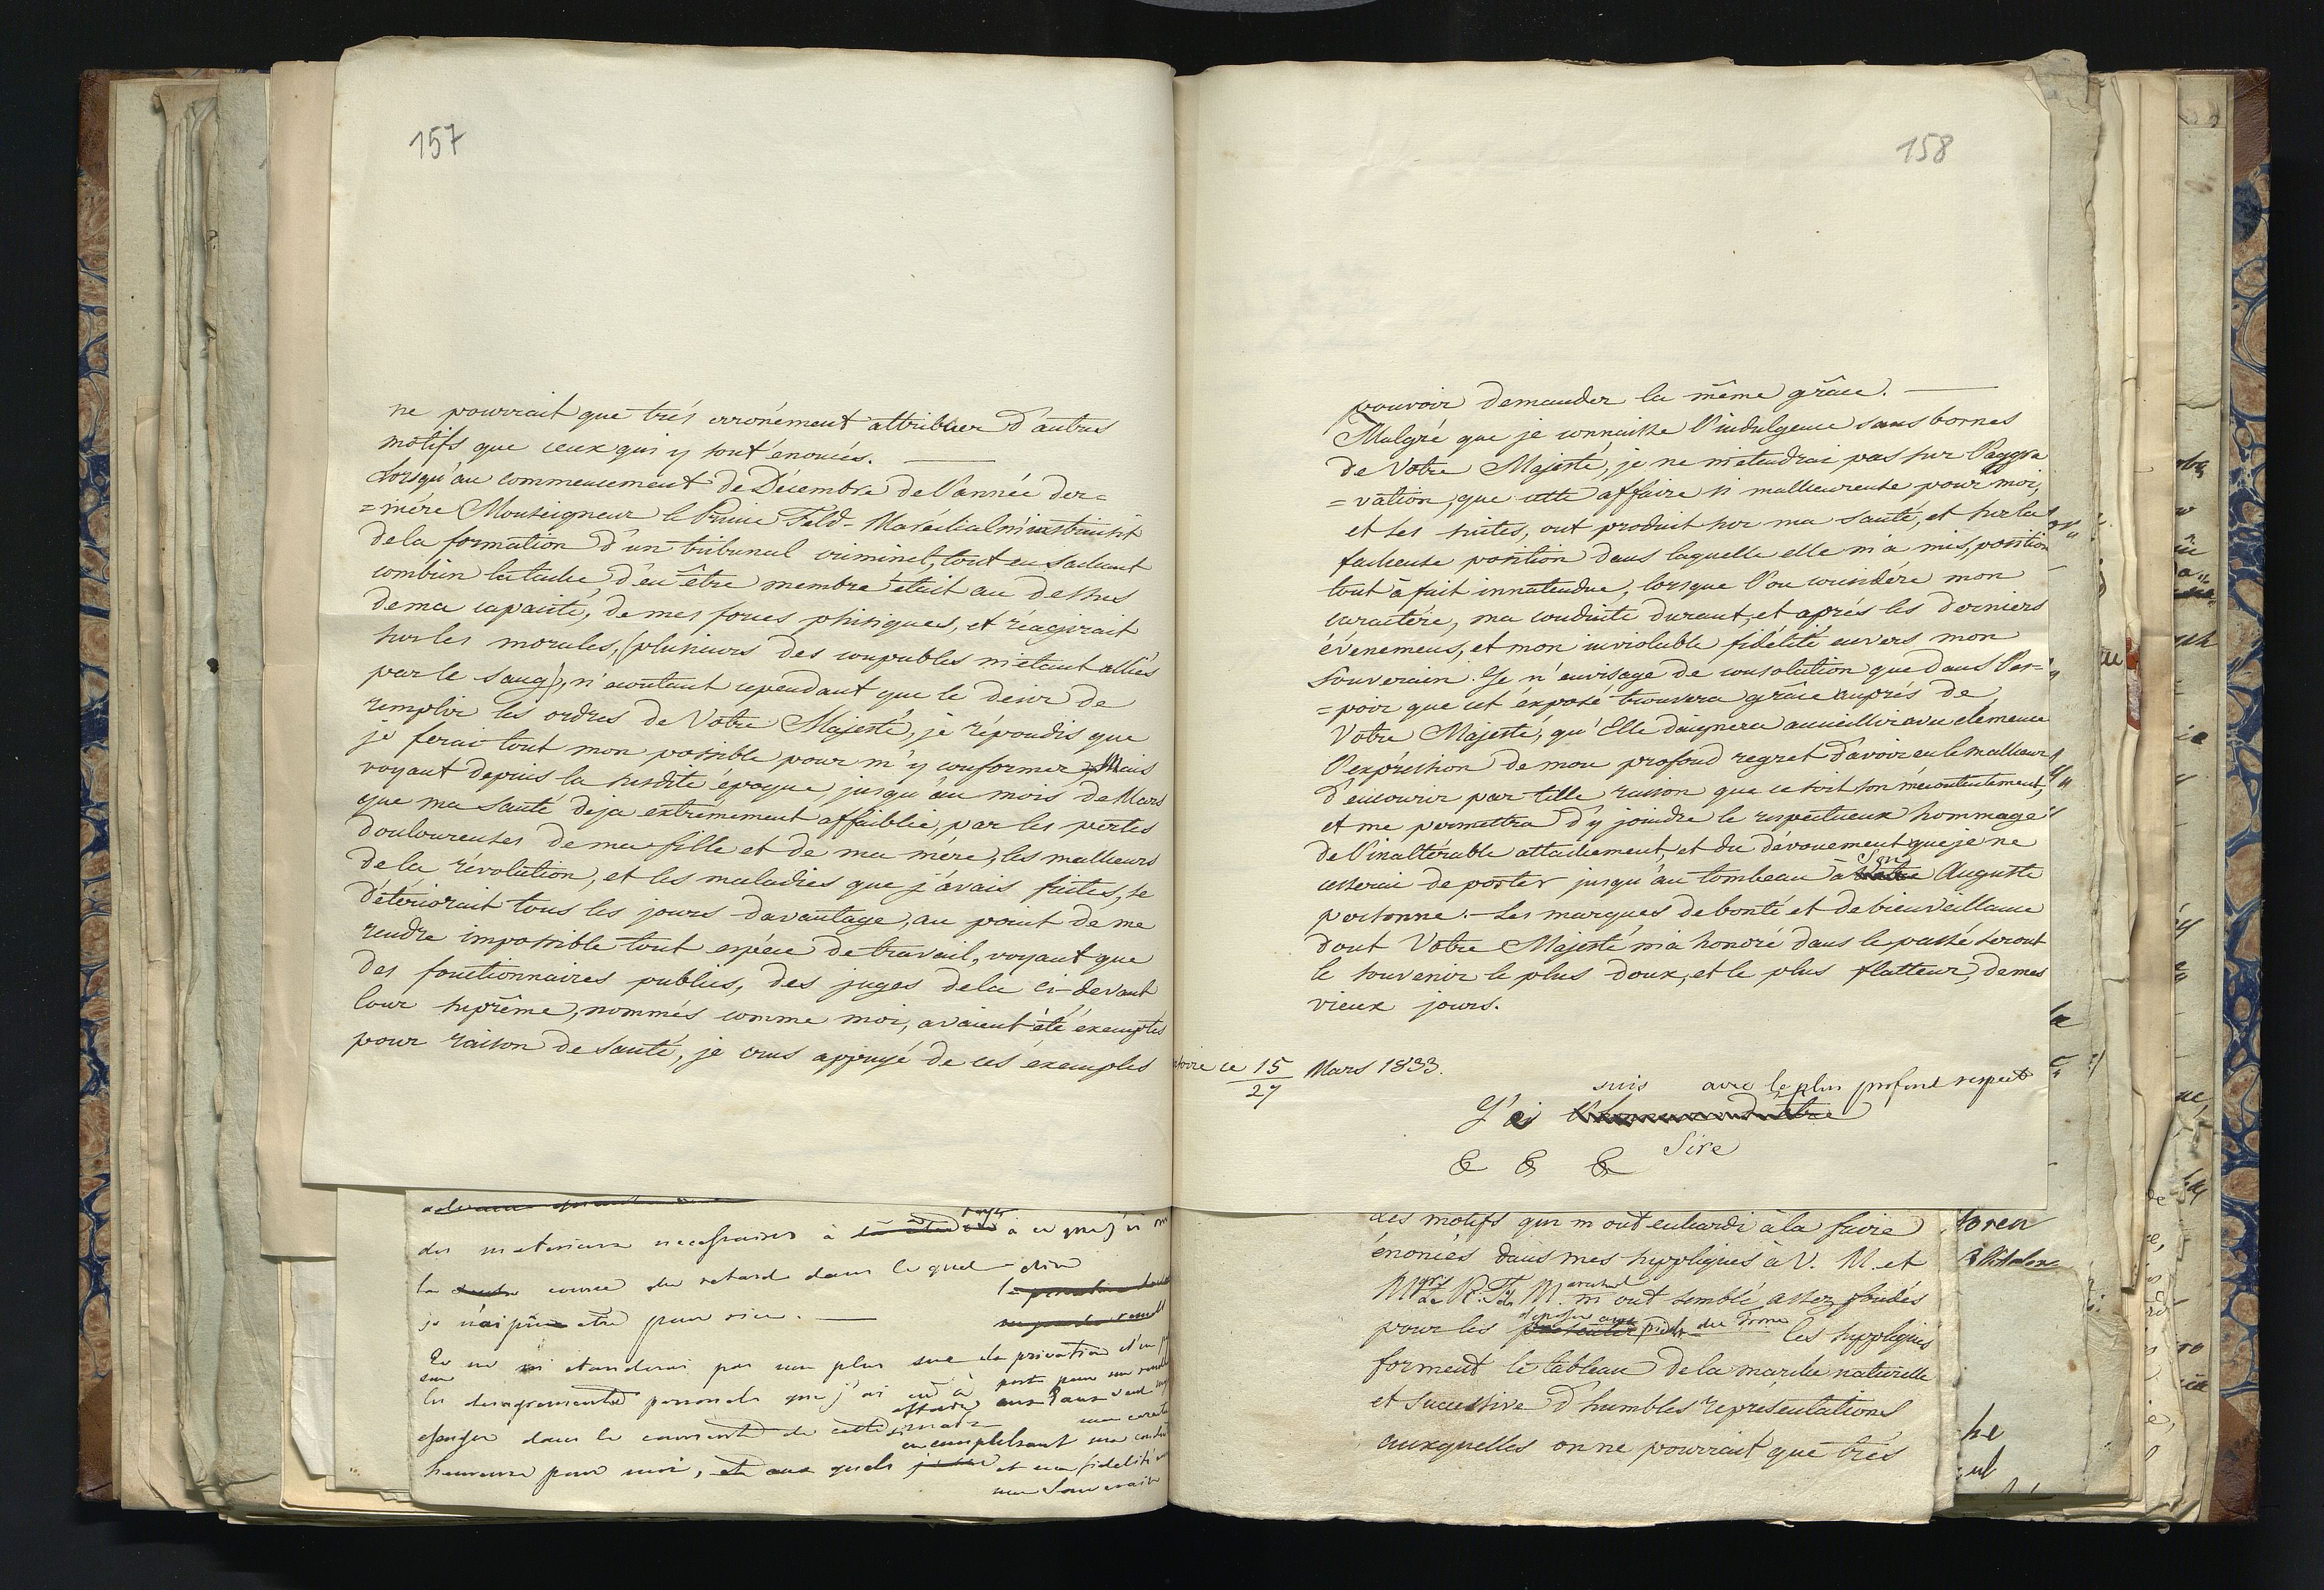 157
ne pourrait que très erronément attribuer d'autres
motifs que ceux qui y sont énoncés. —
Lorsqu'au commencement de Décembre de l'année der=
=nière Monseigneur le Prince Feld-Maréchal m'instruisit
de la formation d'un tribunal criminel, tout en sachant
combien la tache d'en être membre était au dessus
de ma capacité, de mes forces phisiques, et réagirait
sur les morales, (plusieurs des coupables m'étant alliés
par le sang), n'écoutant cependant que le desir de
remplir les ordres de Votre Majesté, je répondis que
je ferai tout mon possible pour m'y conformer. Mais
voyant depuis la susdite époque, jusqu'au mois de Mars
que ma santé deja extrêmement affaiblie, par les pertes
douloureuses de ma fille et de ma mère, les malheurs
de la révolution, et les maladies que j'avais faites, se
détériorait tous les jours davantage, au point de me
rendre impossible tout espèce de travail, voyant que
des fonctionnaires publics, des juges de la ci-devant
Cour suprême, nommés comme moi, avaient été exemptés
pour raison de santé, je crus appuyé de ces exemples
des materiaux necessaires à à ce que j'ai
la cause du retard dans le quel dire
je n'ai pu être pour rien. —
Je ne m'etenderai pas non plus sur la privation d'un
sur
les desagrements personels que j'ai eu à
essuyer dans le courant de cette
heureuse pour moi, et aux quels et ma fidelité
mon Souverain
158
pouvoir demander la même grâce. —
Malgré que je connaisse l'indulgence sans bornes
de Votre Majesté, je ne m'etendrai pas sur l'aggra
=vation, que cette affaire si malheureuse pour moi,
et ses suites, ont produit sur ma santé, et sur la
facheuse position dans laquelle elle m'a mis, position
tout à fait innatendue, lorsque l'on considère mon
caractère, ma conduite durant, et après les derniers
événemens, et mon inviolable fidélité envers mon
Souverain. Je n'envisage de consolation que dans l'es=
=poir que cet éxposé trouvera grâce auprès de
Votre Majesté, qu'Elle daignera accueillir avec clemence
l'expression de mon profond regret d'avoir eu le malheur
d'encourir par telle raison que ce soit son mécontentement,
et me permettra d'y joindre le respectueux hommage
de l'inaltérable attachement, et du dévouement que je ne
Son
cesserai de porter jusqu'au tombeau à Votre Auguste
personne. — Les marques de bonté et de bienveillance
dont Votre Majesté m'a honoré dans le passé seront
le souvenir le plus doux, et le plus flatteur, de mes
vieux jours.
ce 15/27 Mars 1833.
suis avec le plus profond respect
J'ai l'honneur d'être
Sire
& & &
des motifs qui m'ont enhardi à la faire
énoncés dans mes suppliques à V. M. et
Mgr le P. F. Maréchal m'ont semblé assez fondés
déposer aux
pour les présenter pieds du Trone les suppliques
forment le tableau de la marche naturelle
et successive d'humbles représentations
auxquelles on ne pourrait que très